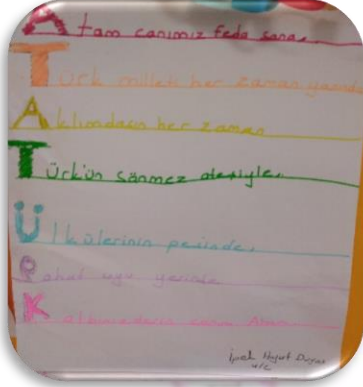 Atam canımız feda sana,
Türk milleti her zaman yanında
Aklımdasın her zaman
Türk'ün sönmez ateşiyle,
Ülkülerinin peşinde,
Rahat uyu yerinde
Kalbimizdesin canım Atam.
İpek
4/C